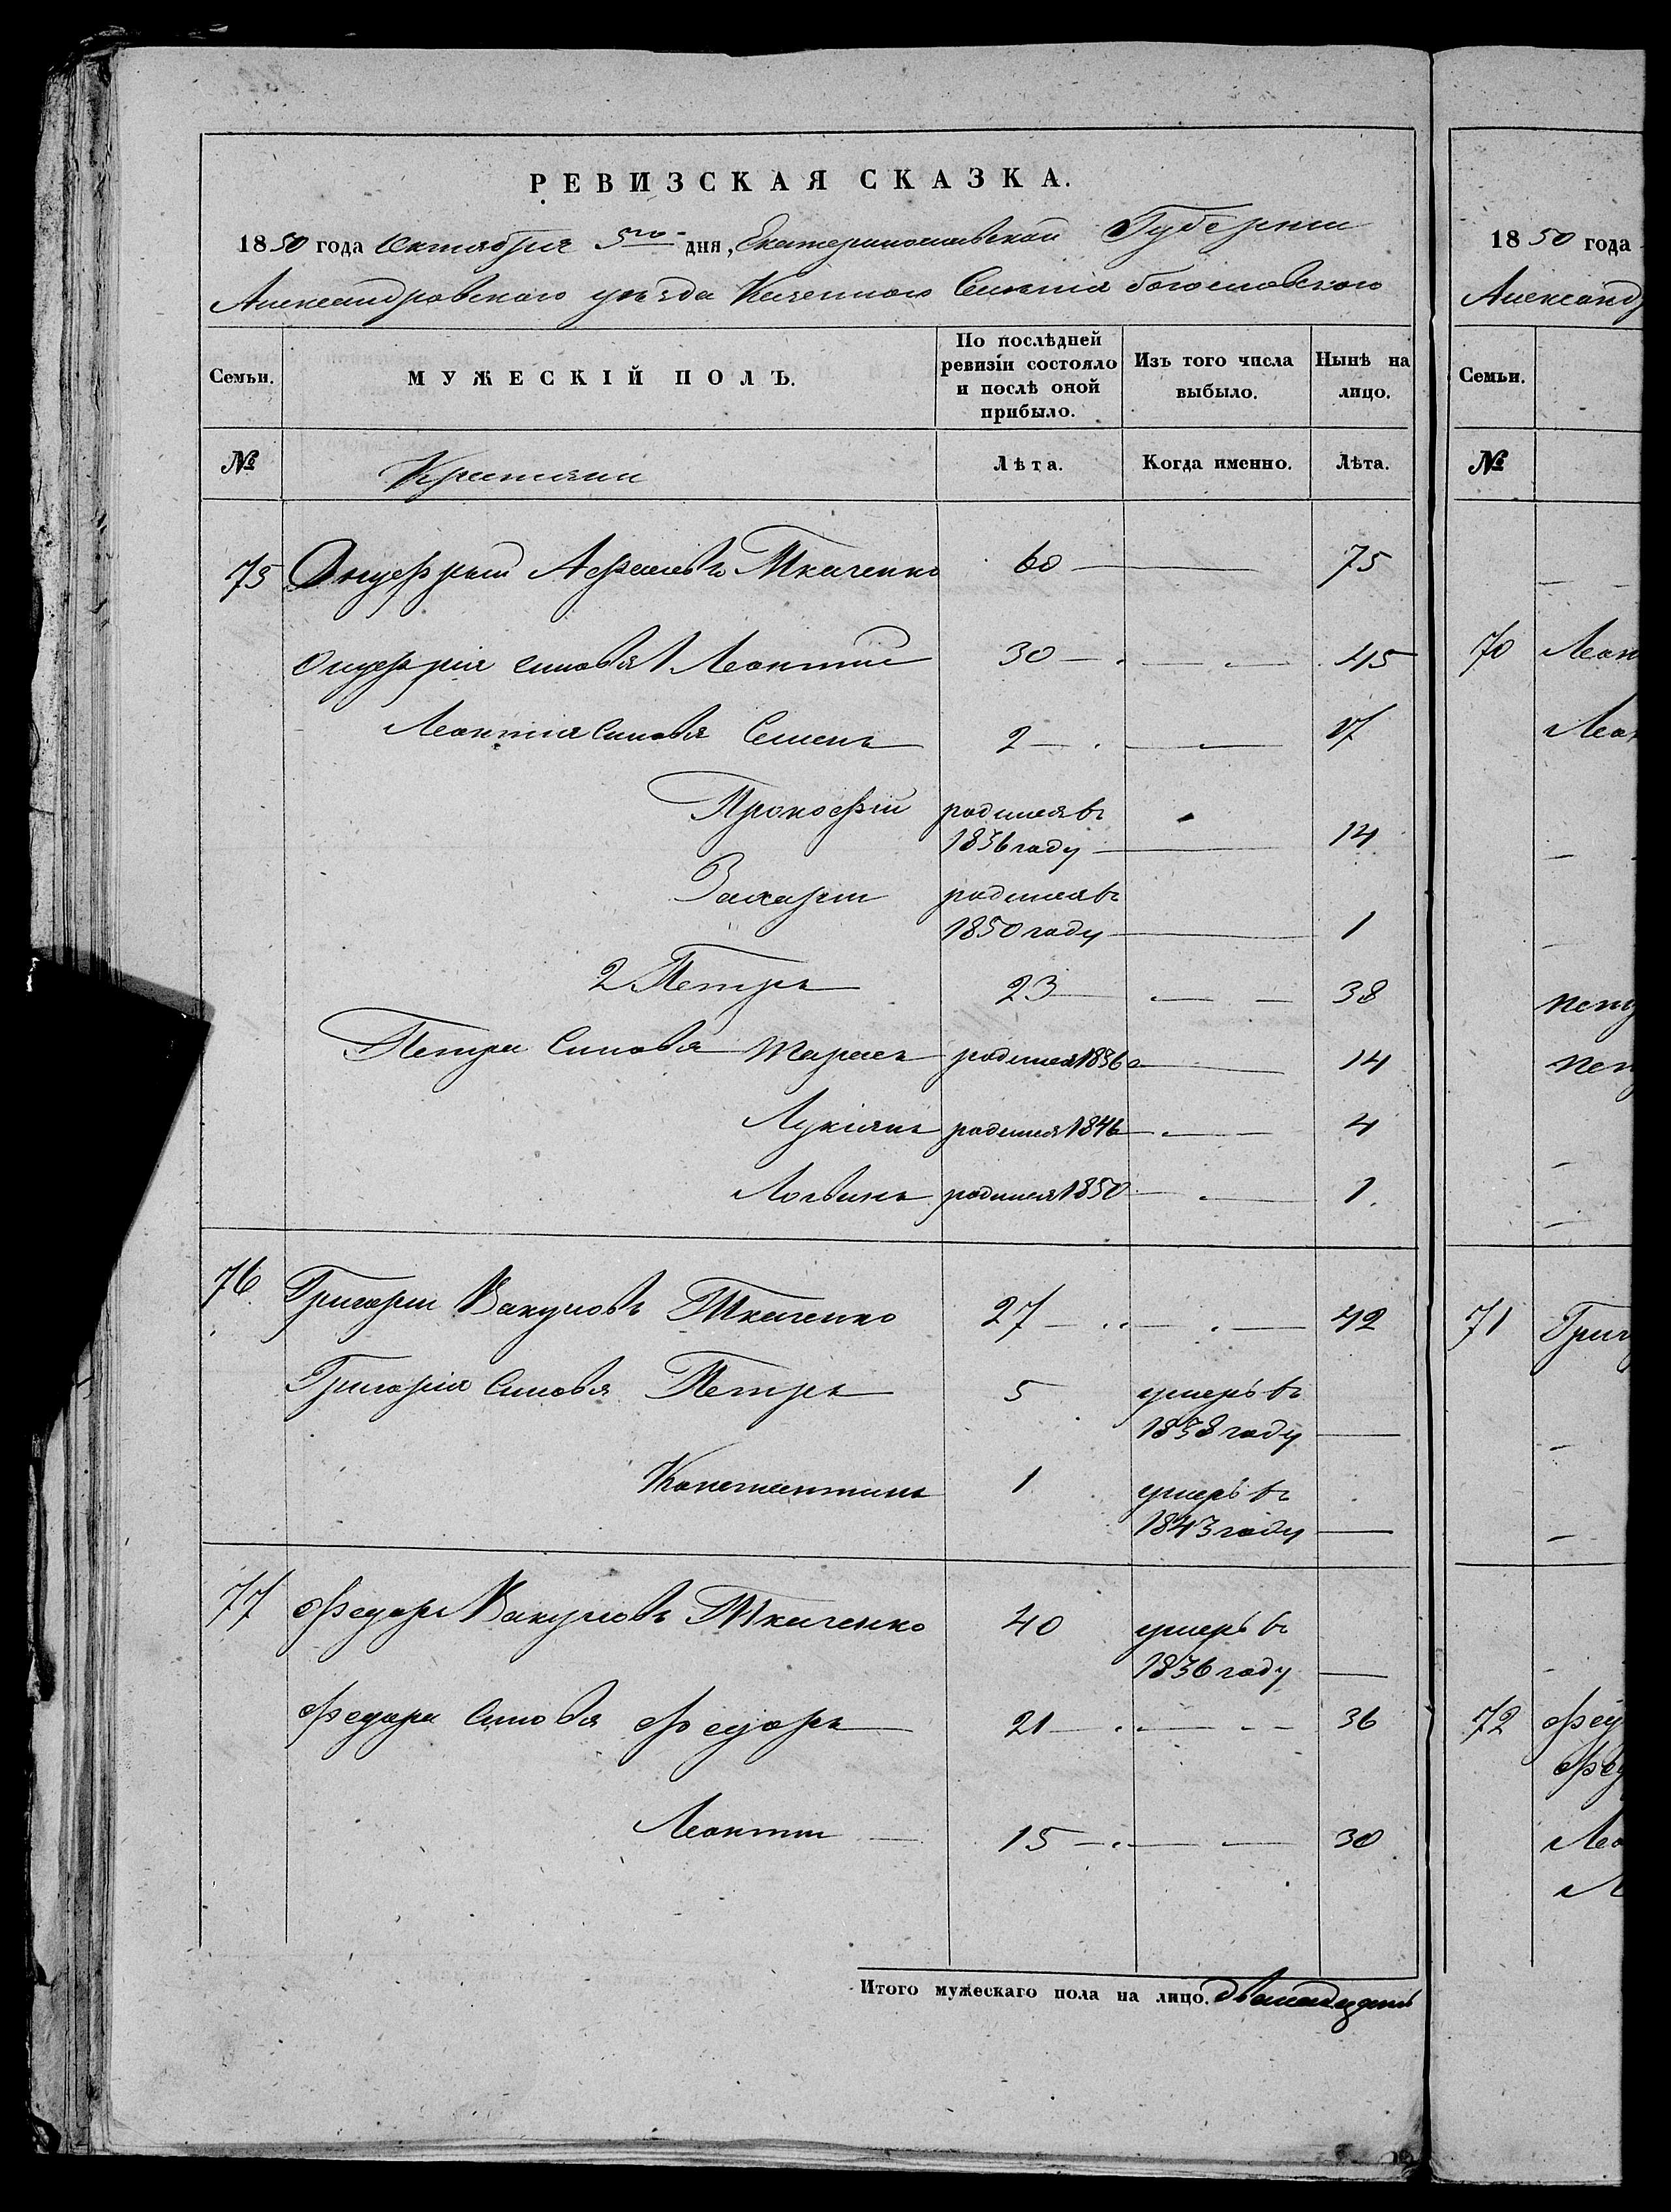 РЕВИЗСКАЯ СКАЗКА.
1850 года Октября 5го дня, Екатеринославской Губернии
Александровского уезда Казенного Селения богословского
Семьи.
МУЖЕСКІЙ ПОЛЪ.
По послѣдней ревизіи состояло и послѣ оной прибыло.
Изъ того числа выбыло.
Нынѣ на лицо.
№
Лѣта.
Когда именно.
Лѣта.
75 Онуфрий Ткаченко 60 — 75
Онуфрія синовя 1 Леонтий 30 — 45
Леонтія Синовя Семенъ 2 — 17
Прокофій родился въ
1836 году — 14
Захарий родился въ
1850 году — 1
2 Петръ 23 — 38
Петра Синовя Тарасъ родился 1836 — 14
Лукіянъ родился 1846 — 4
Логвинъ родился 1850 — 1.
76. Григорий Вакуловъ Ткаченко 27 — 42
Григорія Синовя Петръ 5 умеръ въ
1838 году —
Константинъ 1 умеръ въ
1843 году —
77 Федоръ Вакуловъ Ткаченко 40 умеръ въ
1836 году —
Федора Синовя Федоръ 21 — 36
Леонтий — 15 — 30
Итого мужескаго пола на лицо. двенадцать
1850 года
Александ
Семьи.
№
70 Леон
Леон
Пет
Пет
71 Григ
72 Фед
Фед
Ле